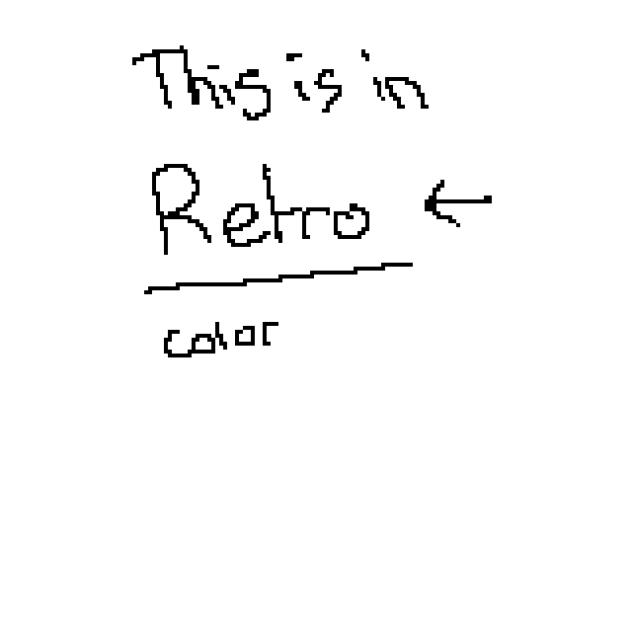 This is in
Retro ←
color